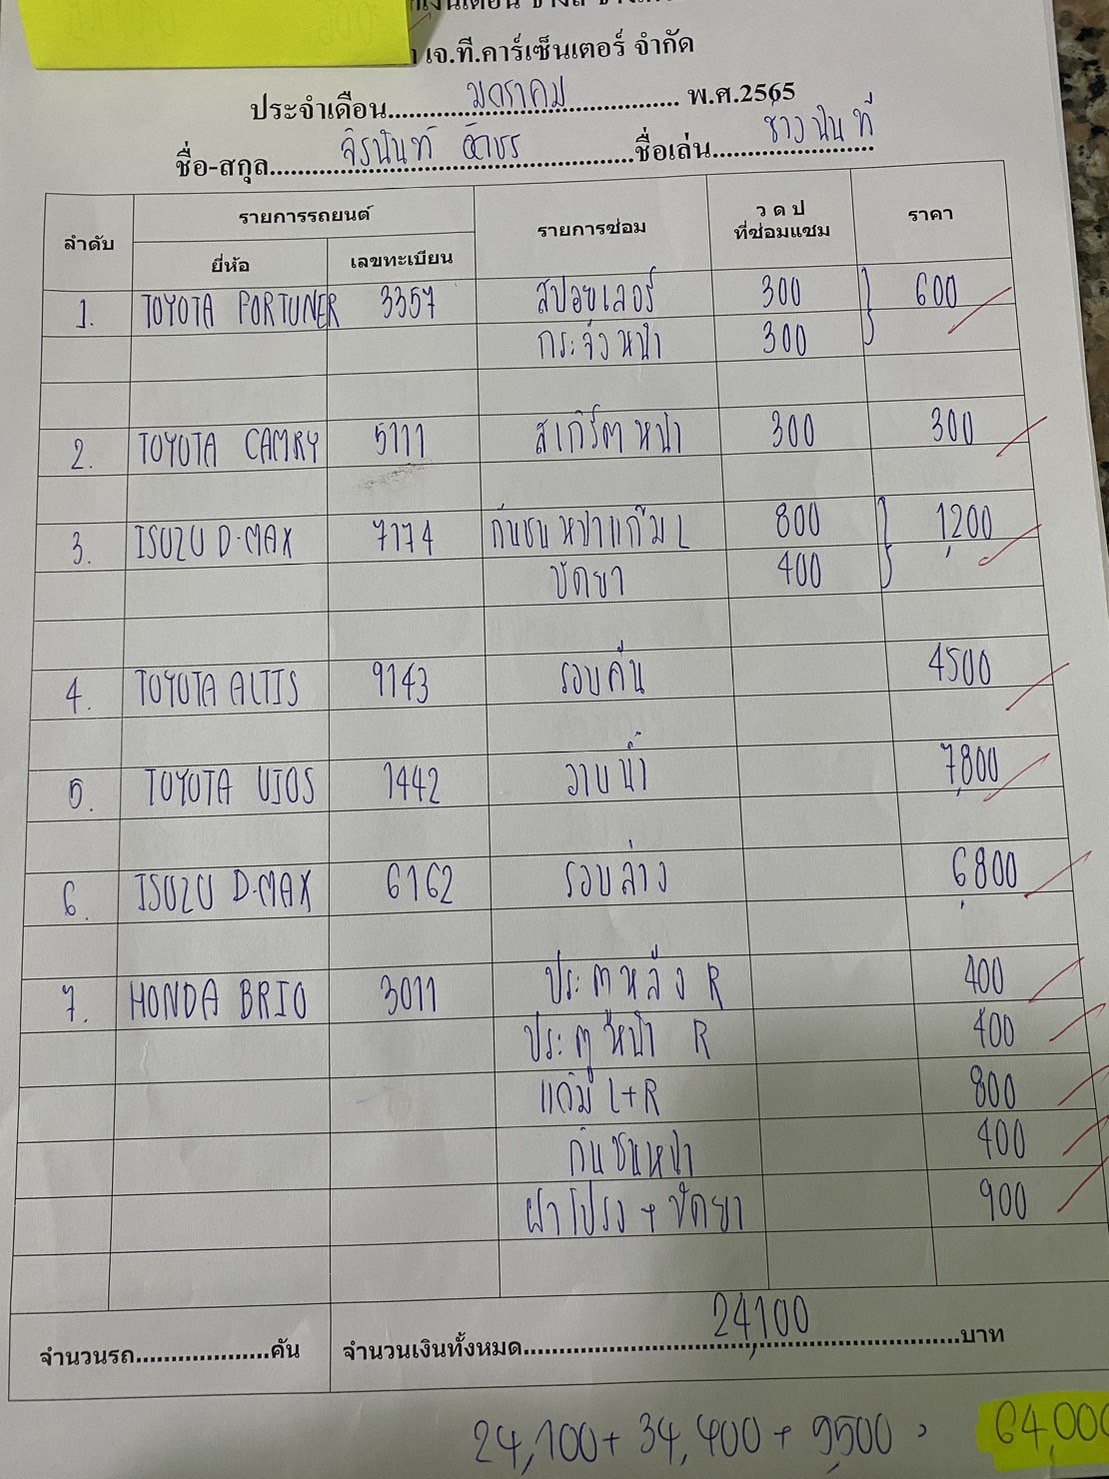 เจ.ที.คาร์เซ็นเตอร์ จำกัด
ประจำเดือน มกราคม พ.ศ.2565
ชื่อ-สกุล จิรนันท์ ชื่อเล่น ช่างนันที
ลำดับ รายการรถยนต์ รายการซ่อม ว ด ป ที่ซ่อมแซม ราคา
ยี่ห้อ เลขทะเบียน
1. TOYOTA FORTUNER 3357 สปอยเลอร์ 300 600
กระจังหน้า 300
2. TOYOTA CAMRY 5111 สเกิร์ตหน้า 300 300
3. ISUZU D-MAX 7174 กันชนหน้าแก้ม L 800 1,200
ขัดยา 400
4. TOYOTA ALTIS 9143 รอบคัน 4500
5. TOYOTA VIOS 1442 วาบน้ำ 7,800
6. ISUZU D-MAX 6162 รอบล่าง 6,800
7. HONDA BRIO 3011 ประตูหลัง R 400
ประตูหน้า R 400
แก้ม L+R 800
กันชนหน้า 400
ฝาโปรง + ขัดยา 900
จำนวนรถ คัน จำนวนเงินทั้งหมด 24,100 บาท
24,100 + 34,400 + 9,500 64,000